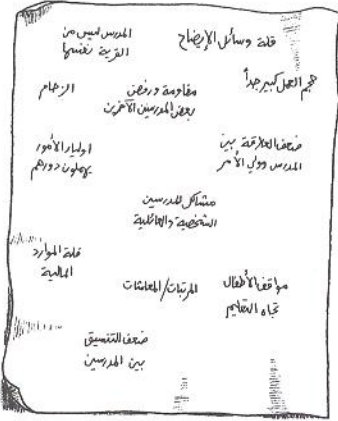 قلة وسائل الإيضاح
المدرس ليس من
القرية نفسها
حجم العمل كبير جداً
مقاومة ورفض
بعض المدرسين الآخرين
الزحام
ضعف العلاقة بين
المدرس وولي الأمر
اولياء الأمور
يهملون دورهم
مشاكل المدرسين
الشخصية والعائلية
قلة الموارد
المالية
مواقف الأطفال
تجاه التعليم
المرتبات/المعاشات
ضعف التنسيق
بين المدرسين